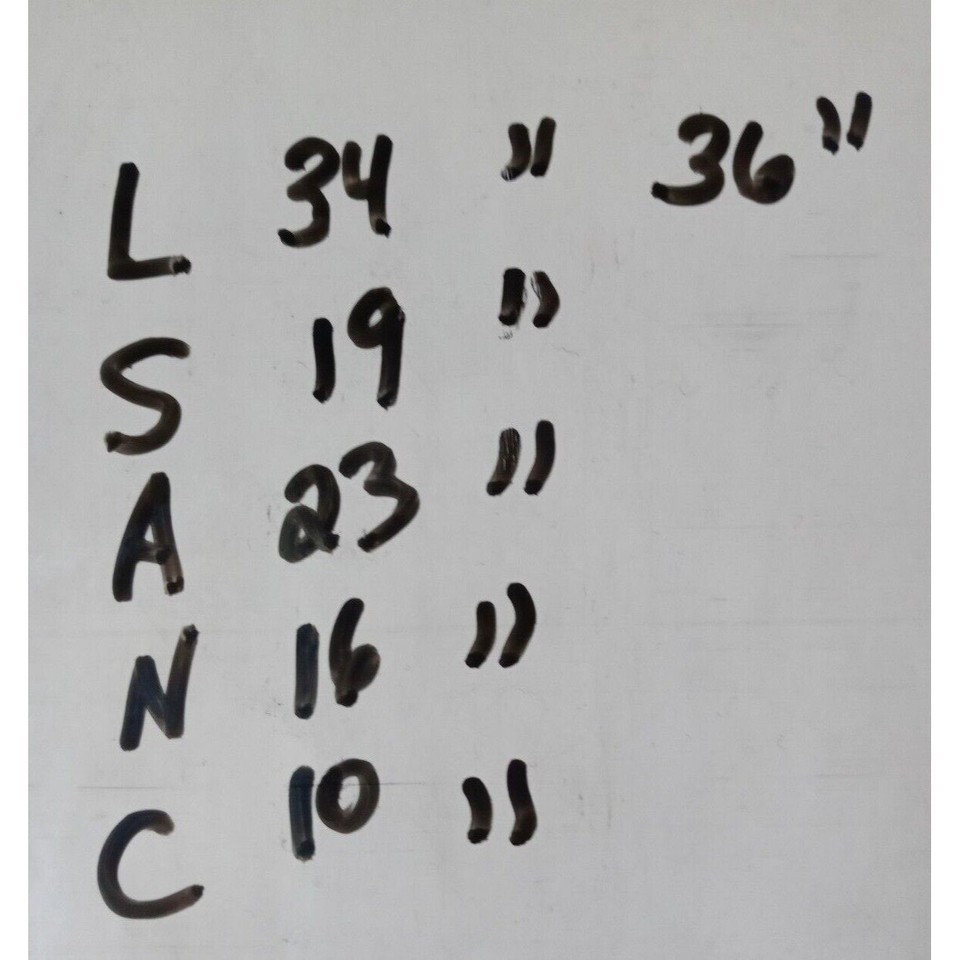 L 34 " 36"
S 19 "
A 23 "
N 16 "
C 10 "